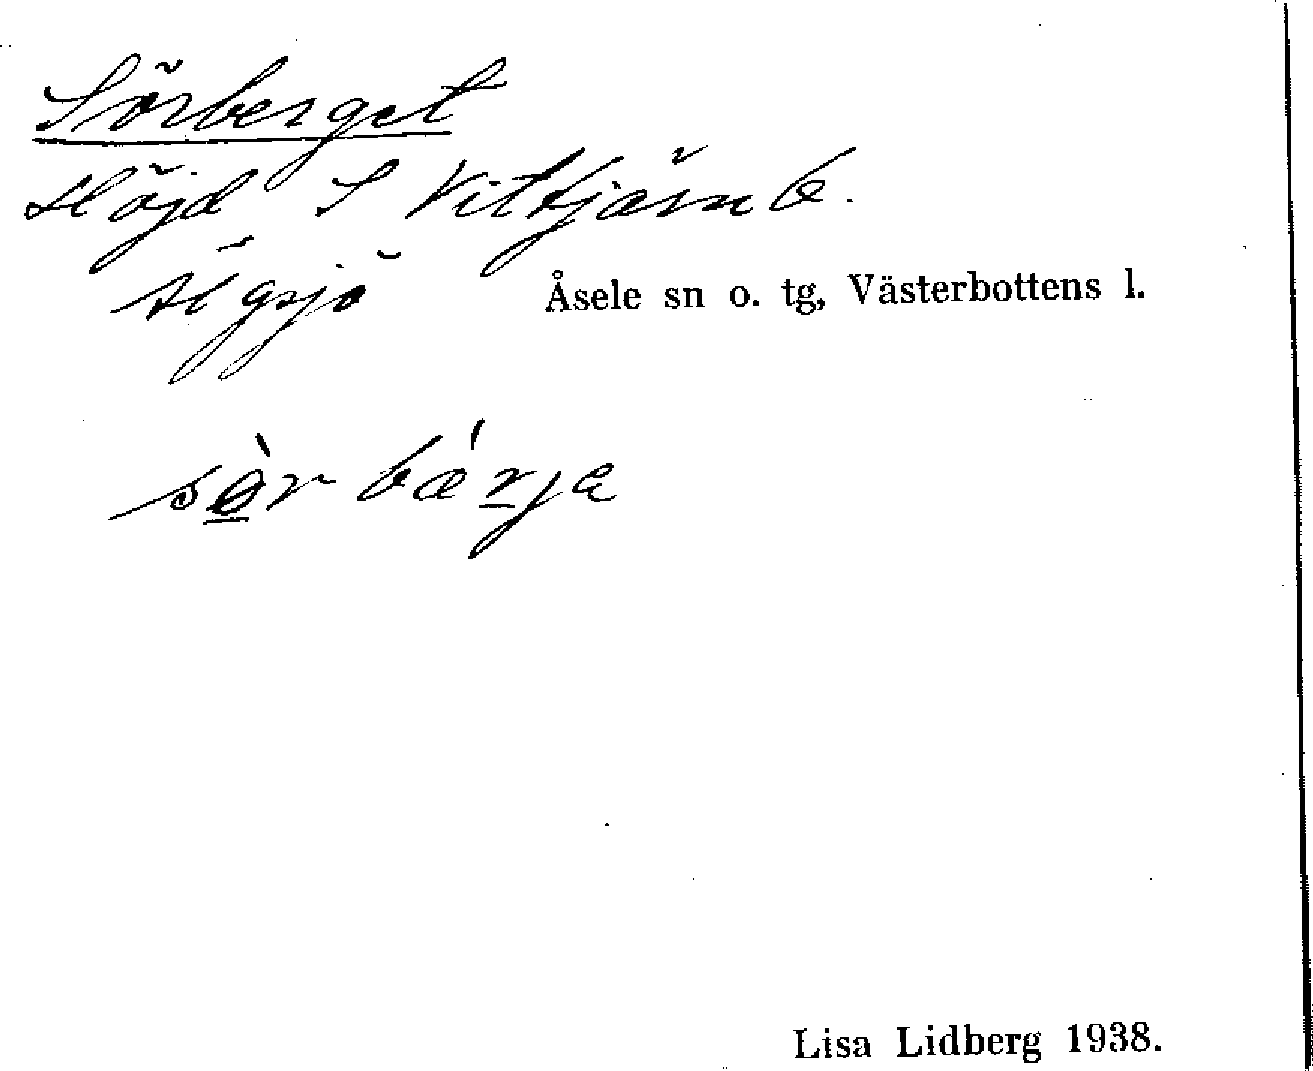 Sörberget
Höjd S Vittjärn b.
Högsjö Åsele sn o. tg, Västerbottens l.
sò̱r bǽṟja
Lisa Lidberg 1938.